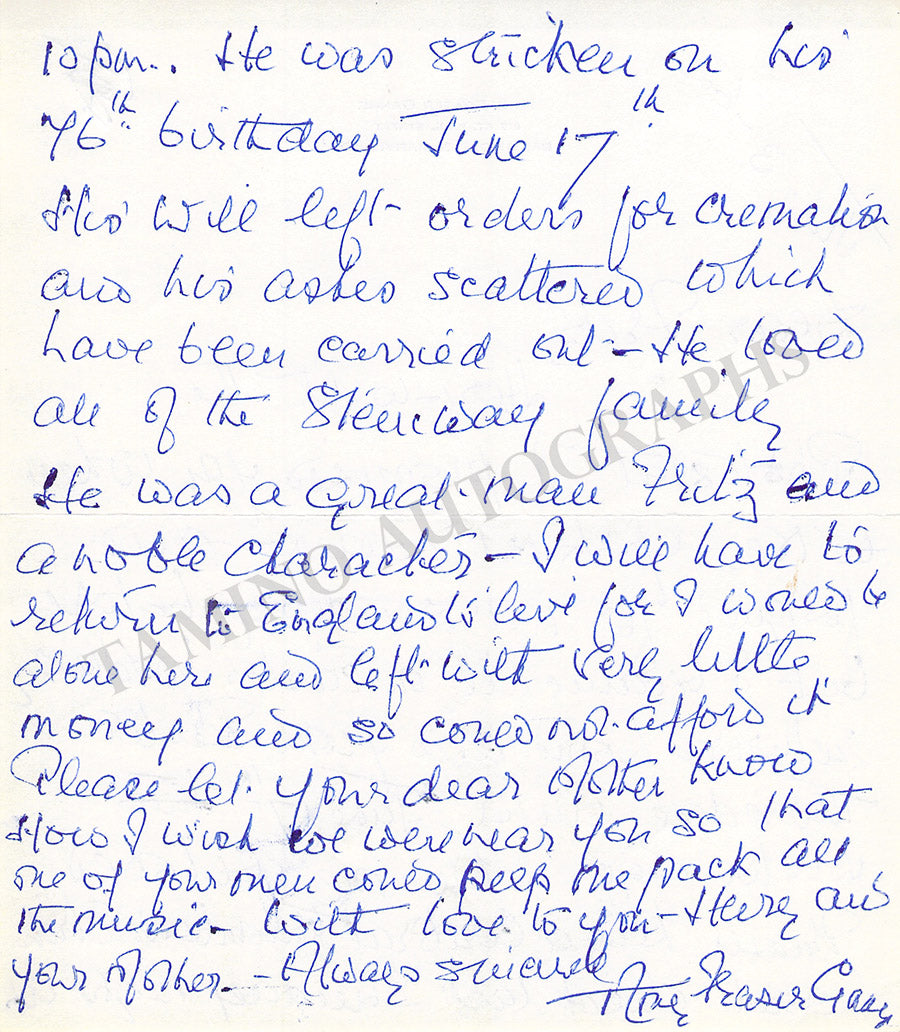 10 pm.. He was stricken on his
76th birthday June 17th
His will left orders for cremation
and his ashes scattered which
have been carried out - He loved
all of the Steinway family
He was a great man Fritz and
a noble character - I will have to
return to England to live for I would be
alone here and left with very little
money and so could not afford it
Please let your dear Mother know
How I wish we were near you so that
one of your men could help me pack all
the music - With love to you - Henry and
your Mother. - Always sincerely
Fraser Gange
TAMINO AUTOGRAPHS